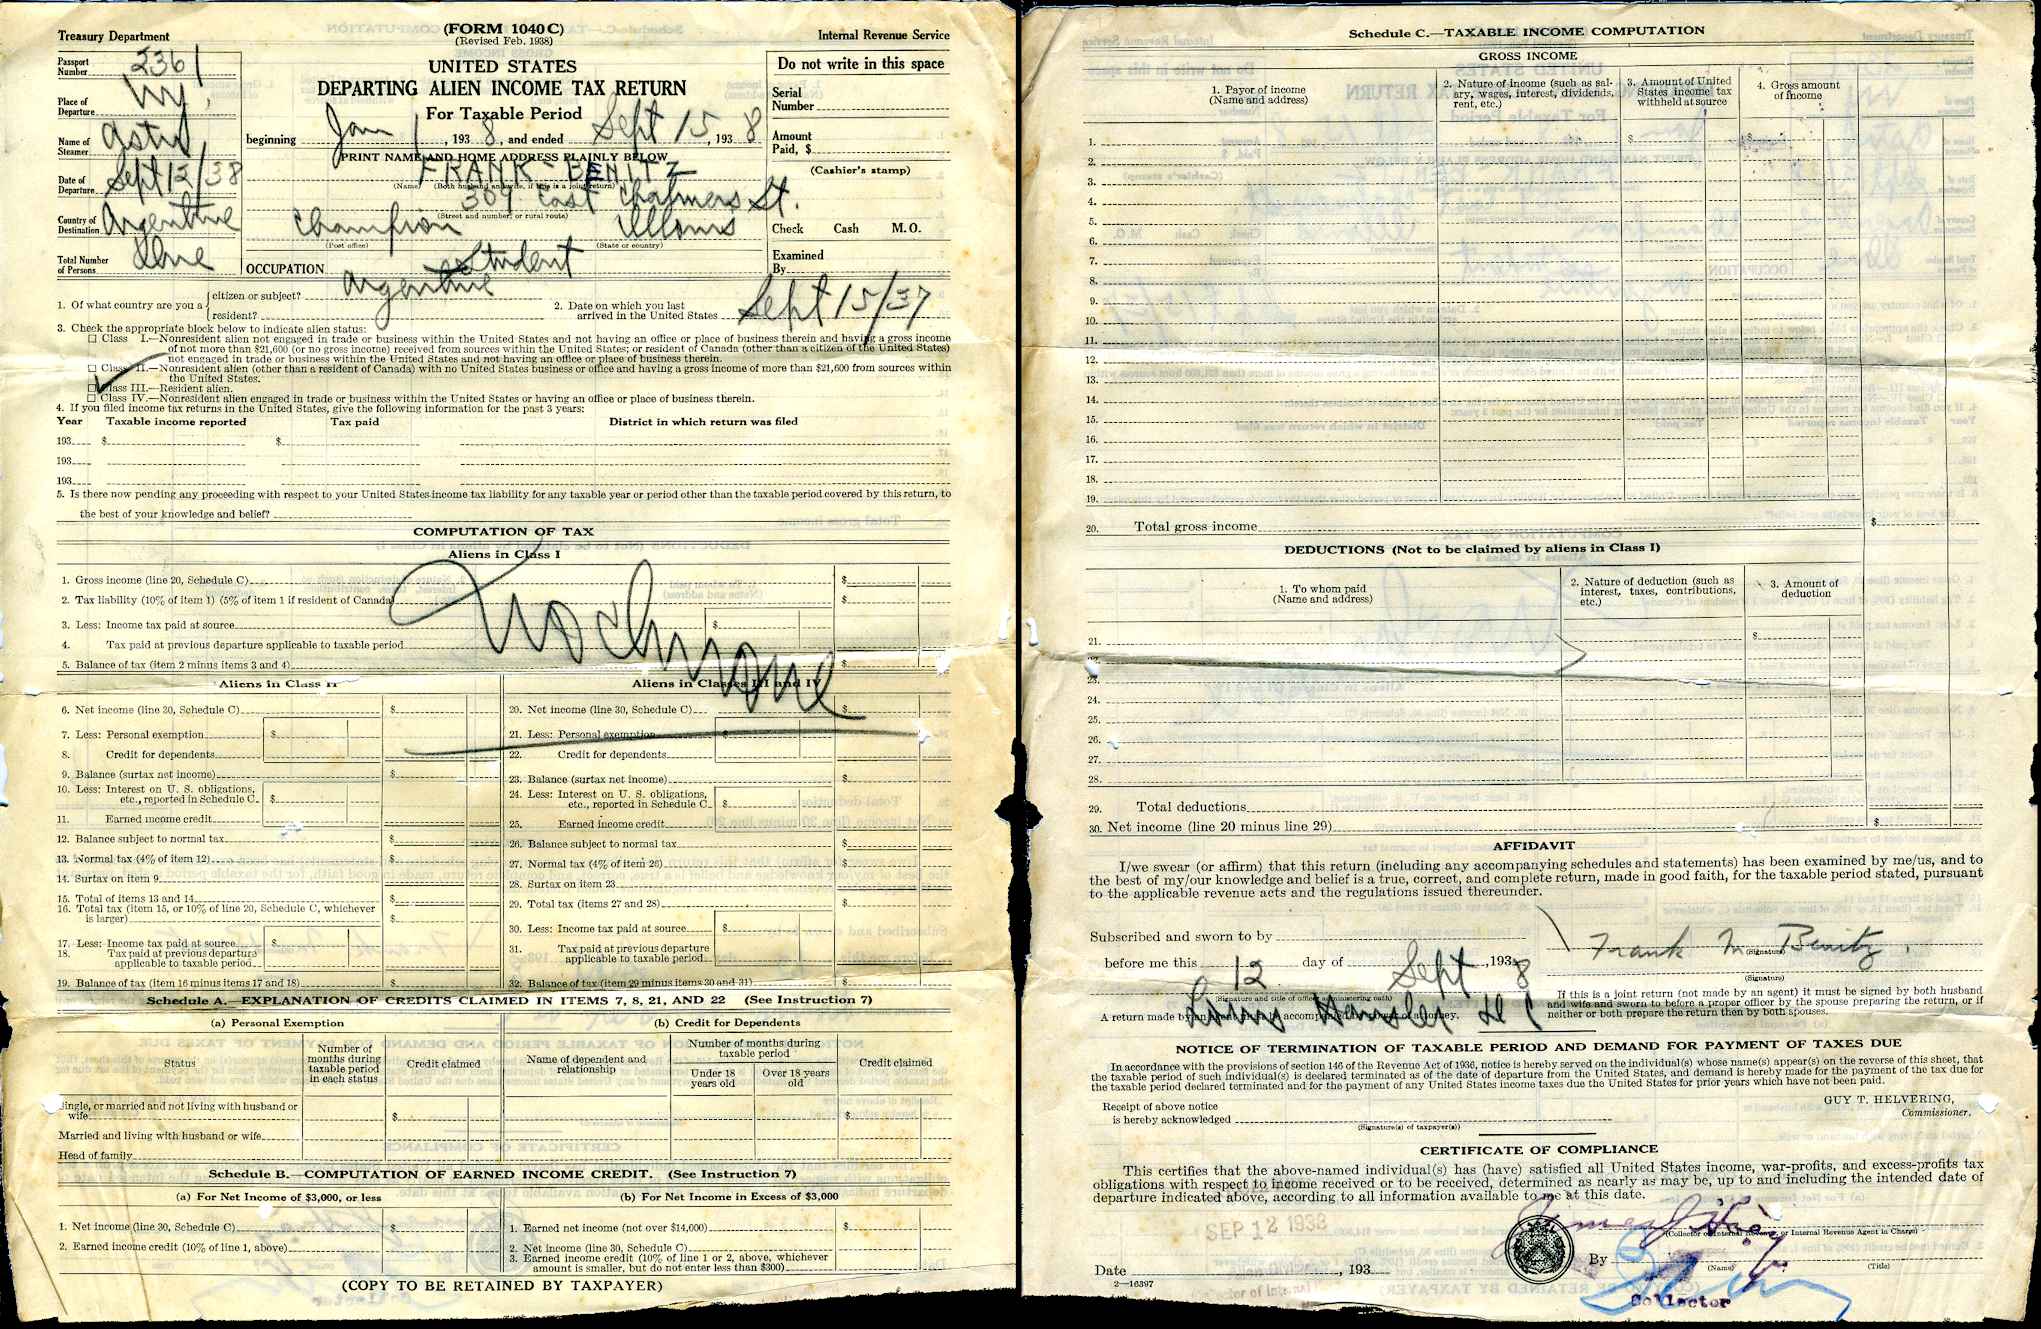 Treasury Department
(FORM 1040 C)
(Revised Feb. 1938)
Internal Revenue Service
Passport Number 2361
Place of Departure NY.
Name of Steamer
Date of Departure Sept 12/38
Country of Destination Argentine
Total Number of Persons One
UNITED STATES
DEPARTING ALIEN INCOME TAX RETURN
For Taxable Period
beginning Jan 1, 193 8, and ended Sept 15, 193 8
PRINT NAME AND HOME ADDRESS PLAINLY BELOW
FRANK - BENITZ
(Name) (Both husband and wife, if this is a joint return)
309 East Chalmers St.
(Street and number, or rural route)
Champion Illinois
(Post office) (State or country)
OCCUPATION student
Do not write in this space
Serial Number
Amount Paid, $
(Cashier's stamp)
Check Cash M.O.
Examined By
1. Of what country are you a { citizen or subject? Argentine
resident?
2. Date on which you last arrived in the United States Sept 15/37
3. Check the appropriate block below to indicate alien status:
☐ Class I.—Nonresident alien not engaged in trade or business within the United States and not having an office or place of business therein and having a gross income
of not more than $21,600 (or no gross income) received from sources within the United States; or resident of Canada (other than a citizen of the United States)
not engaged in trade or business within the United States and not having an office or place of business therein.
☐ Class II.—Nonresident alien (other than a resident of Canada) with no United States business or office and having a gross income of more than $21,600 from sources within
the United States.
☐ Class III.—Resident alien.
☐ Class IV.—Nonresident alien engaged in trade or business within the United States or having an office or place of business therein.
4. If you filed income tax returns in the United States, give the following information for the past 3 years:
Year Taxable income reported Tax paid District in which return was filed
193 $ $
193
193
5. Is there now pending any proceeding with respect to your United States income tax liability for any taxable year or period other than the taxable period covered by this return, to
the best of your knowledge and belief?
COMPUTATION OF TAX
Aliens in Class I
1. Gross income (line 20, Schedule C) $
2. Tax liability (10% of item 1) (5% of item 1 if resident of Canada) $
3. Less: Income tax paid at source $
4. Tax paid at previous departure applicable to taxable period
5. Balance of tax (item 2 minus items 3 and 4) $
Aliens in Class II
6. Net income (line 30, Schedule C) $
7. Less: Personal exemption $
8. Credit for dependents
9. Balance (surtax net income) $
10. Less: Interest on U. S. obligations,
etc., reported in Schedule C $
11. Earned income credit
12. Balance subject to normal tax $
13. Normal tax (4% of item 12) $
14. Surtax on item 9
15. Total of items 13 and 14 $
16. Total tax (item 15, or 10% of line 20, Schedule C, whichever
is larger) $
17. Less: Income tax paid at source $
18. Tax paid at previous departure
applicable to taxable period
19. Balance of tax (item 16 minus items 17 and 18) $
Aliens in Classes III and IV
20. Net income (line 30, Schedule C) $
21. Less: Personal exemption $
22. Credit for dependents
23. Balance (surtax net income) $
24. Less: Interest on U. S. obligations,
etc., reported in Schedule C $
25. Earned income credit
26. Balance subject to normal tax $
27. Normal tax (4% of item 26) $
28. Surtax on item 23
29. Total tax (items 27 and 28) $
30. Less: Income tax paid at source $
31. Tax paid at previous departure
applicable to taxable period
32. Balance of tax (item 29 minus items 30 and 31) $
Schedule A.—EXPLANATION OF CREDITS CLAIMED IN ITEMS 7, 8, 21, AND 22 (See Instruction 7)
(a) Personal Exemption (b) Credit for Dependents
Status
Number of months during taxable period in each status
Credit claimed
Name of dependent and relationship
Number of months during taxable period
Under 18 years old
Over 18 years old
Credit claimed
Single, or married and not living with husband or
wife $ $
Married and living with husband or wife
Head of family
Schedule B.—COMPUTATION OF EARNED INCOME CREDIT. (See Instruction 7)
(a) For Net Income of $3,000, or less (b) For Net Income in Excess of $3,000
1. Net income (line 30, Schedule C) $
2. Earned income credit (10% of line 1, above)
1. Earned net income (not over $14,000) $
2. Net income (line 30, Schedule C)
3. Earned income credit (10% of line 1 or 2, above, whichever
amount is smaller, but do not enter less than $300)
(COPY TO BE RETAINED BY TAXPAYER)
Schedule C.—TAXABLE INCOME COMPUTATION
GROSS INCOME
1. Payor of income (Name and address)
2. Nature of income (such as salary, wages, interest, dividends, rent, etc.)
3. Amount of United States income tax withheld at source
4. Gross amount of income
1. $ $
2.
3.
4.
5.
6.
7.
8.
9.
10.
11.
12.
13.
14.
15.
16.
17.
18.
19.
20. Total gross income $
DEDUCTIONS (Not to be claimed by aliens in Class I)
1. To whom paid (Name and address)
2. Nature of deduction (such as interest, taxes, contributions, etc.)
3. Amount of deduction
21. $
22.
23.
24.
25.
26.
27.
28.
29. Total deductions
30. Net income (line 20 minus line 29) $
AFFIDAVIT
I/we swear (or affirm) that this return (including any accompanying schedules and statements) has been examined by me/us, and to
the best of my/our knowledge and belief is a true, correct, and complete return, made in good faith, for the taxable period stated, pursuant
to the applicable revenue acts and the regulations issued thereunder.
Subscribed and sworn to by
before me this 12 day of Sept, 193 8
(Signature and title of officer administering oath)
Frank M. Benitz.
(Signature)
(Signature)
If this is a joint return (not made by an agent) it must be signed by both husband
and wife and sworn to before a proper officer by the spouse preparing the return, or if
neither or both prepare the return then by both spouses.
NOTICE OF TERMINATION OF TAXABLE PERIOD AND DEMAND FOR PAYMENT OF TAXES DUE
In accordance with the provisions of section 146 of the Revenue Act of 1936, notice is hereby served on the individual(s) whose name(s) appear(s) on the reverse of this sheet, that
the taxable period of such individual(s) is declared terminated as of the date of departure from the United States, and demand is hereby made for the payment of the tax due for
the taxable period declared terminated and for the payment of any United States income taxes due the United States for prior years which have not been paid.
Receipt of above notice
is hereby acknowledged
(Signature(s) of taxpayer(s))
GUY T. HELVERING,
Commissioner.
CERTIFICATE OF COMPLIANCE
This certifies that the above-named individual(s) has (have) satisfied all United States income, war-profits, and excess-profits tax
obligations with respect to income received or to be received, determined as nearly as may be, up to and including the intended date of
departure indicated above, according to all information available to me at this date.
SEP 12 1938
(Collector of Internal Revenue, or Internal Revenue Agent in Charge)
Date , 193
By
(Name) (Title)
2—16397
Collector